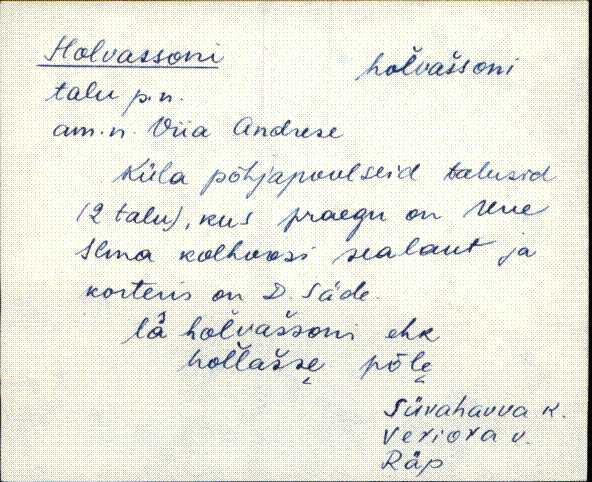 Holvassoni holvašsoni
talu p.n.
am.n. Viia Andrese
Küla põhjapoolseid talusid
(2 talu), kus praegu on Uue
Ilma kolhoosi sealaut ja
korteris on D. Säde.
lä̆ holvašsoni ehk
hollašse̬ põle̬
Süvahavva k.
Veriora v.
Räp